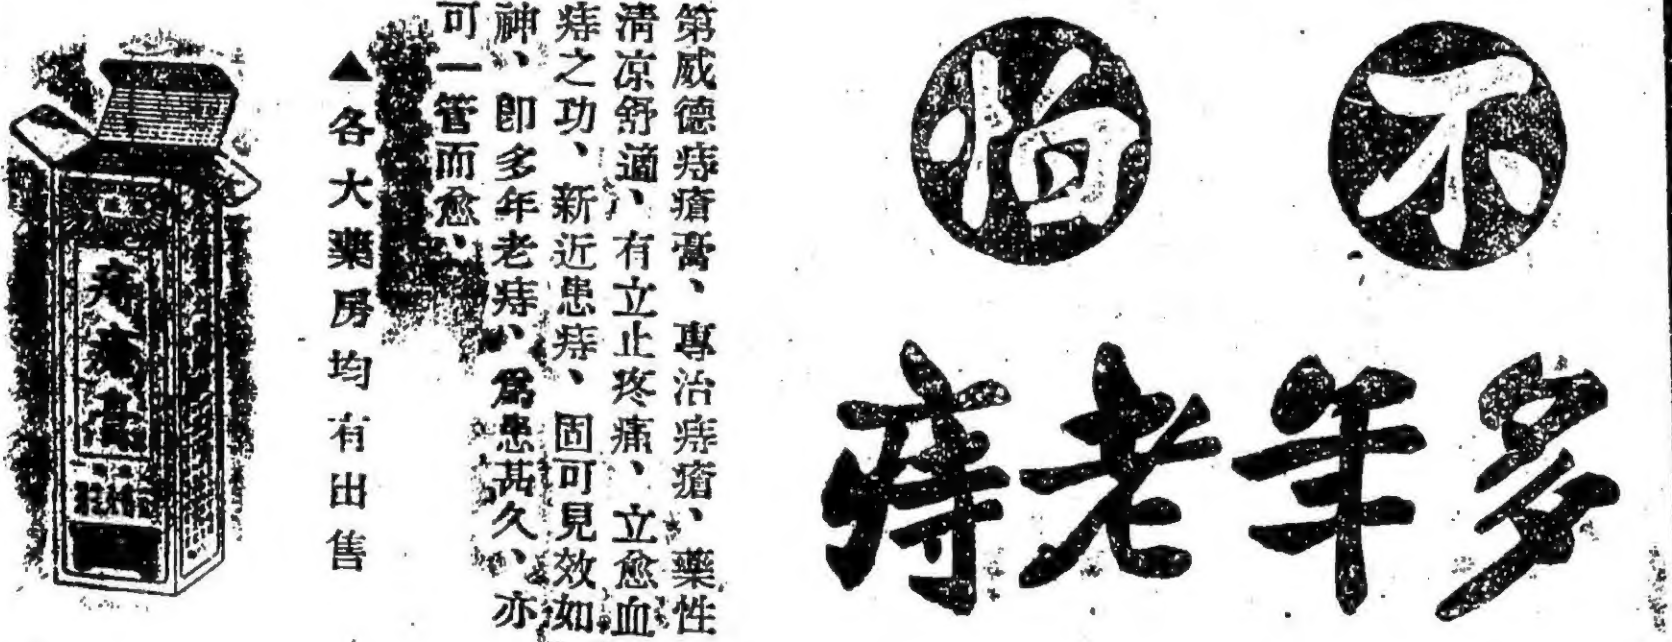 不怕
多年老痔
第威德痔瘡膏、專治痔瘡、藥性
清凉舒適、有立止疼痛、立愈血
痔之功、新近患痔、固可見效如
神、卽多年老痔、爲患甚久、亦
可一管而愈、
▲各大藥房均有出售
痔瘡膏